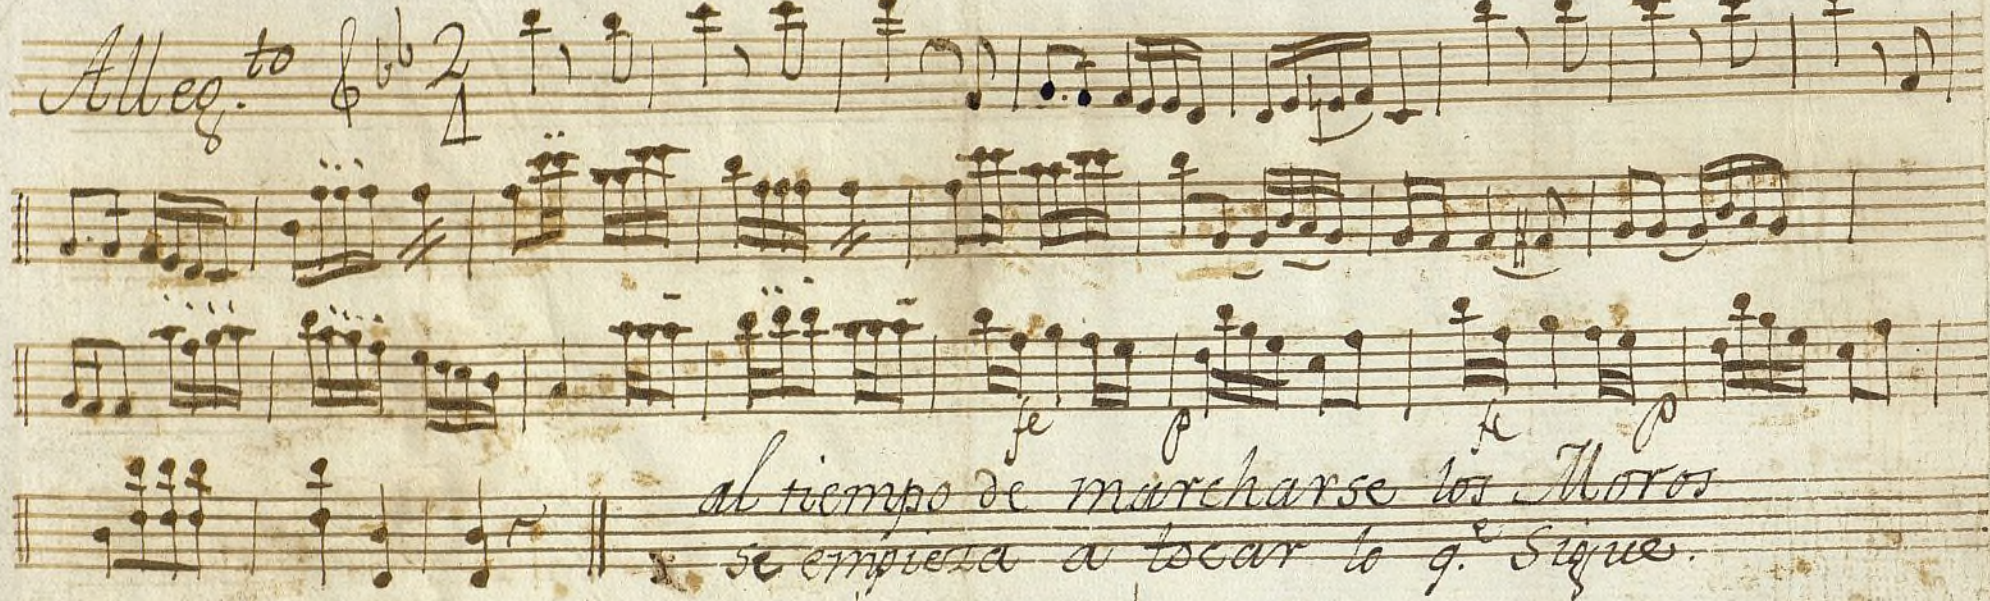 Alleg.to 2 4
fe p fe p
al tiempo de marcharse los Moros
se empieza a tocar lo q.e Sigue.